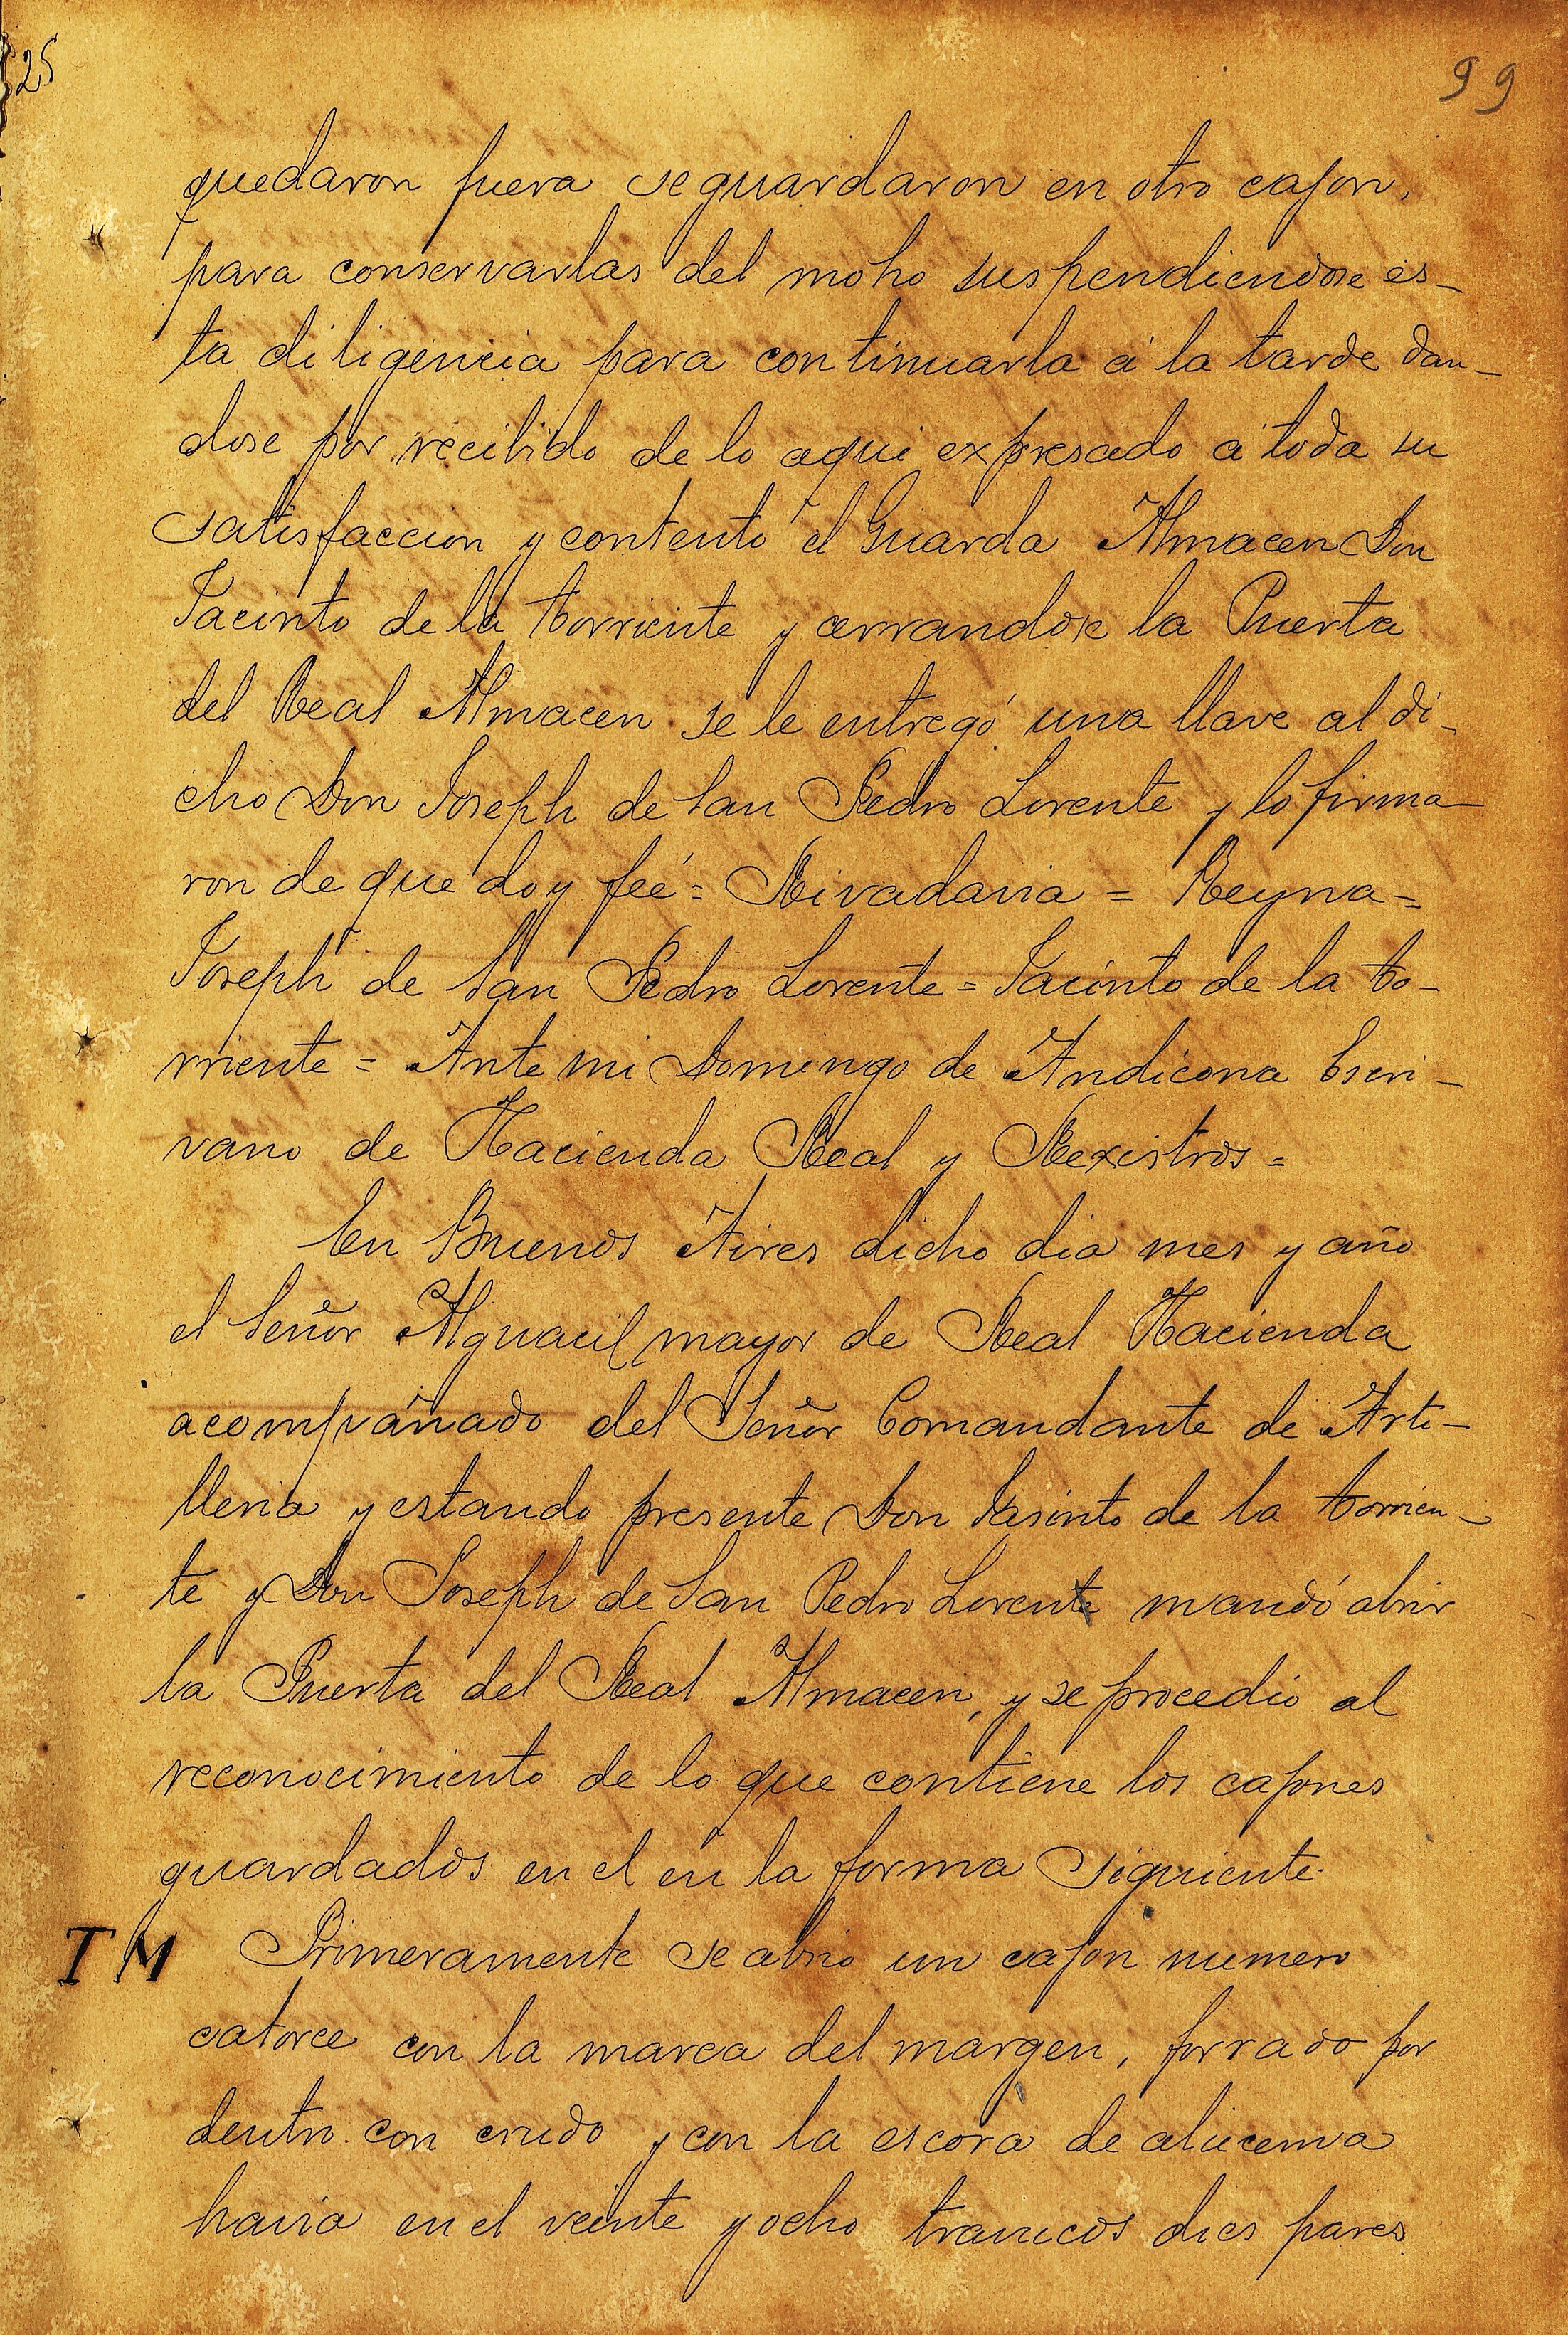 25
99
quedaron fuera se guardaron en otro cajon,
para conservarlas del moho suspendiendose es-
ta diligencia para continuarla á la tarde dan-
dose por recibido de lo aqui expresado á toda su
satisfaccion y contento el Guarda Almacen Don
Jacinto de la Torriente y cerrandose la Puerta
del Real Almacen se le entregó una llave al di-
cho Don Joseph de San Pedro Lorente y lo firma-
ron de que doy feé = Rivadavia = Reyna =
Joseph de San Pedro Lorente = Jacinto de la To-
rriente = Ante mi Domingo de Andicona Escri-
vano de Hacienda Real y Rexistros =
En Buenos Aires dicho dia mes y año
el Señor Alguacil mayor de Real Hacienda
acompañado del Señor Comandante de Arti-
lleria y estando presente Don Jasinto de la Torrien-
te y Don Joseph de San Pedro Lorente mandó abrir
la Puerta del Real Almacen, y se procedio al
reconocimiento de lo que contiene los cajones
guardados en el en la forma siguiente.
TM Primeramente se abrio un cajon numero
catorce con la marca del margen, forrado por
dentro con crudo y con la escora de alucema
havia en el veinte y ocho travucos dies pares